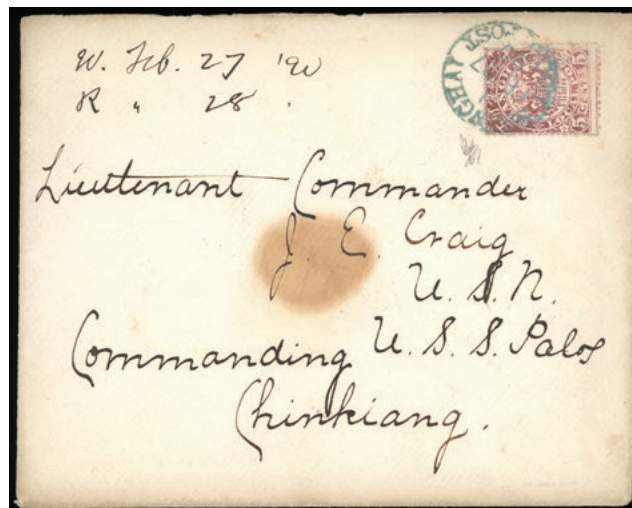 W. Feb. 27 '90
R " 28 .
Lieutenant Commander
J. E. Craig
U. S. N.
Commanding U. S. S. Palos
Chinkiang.